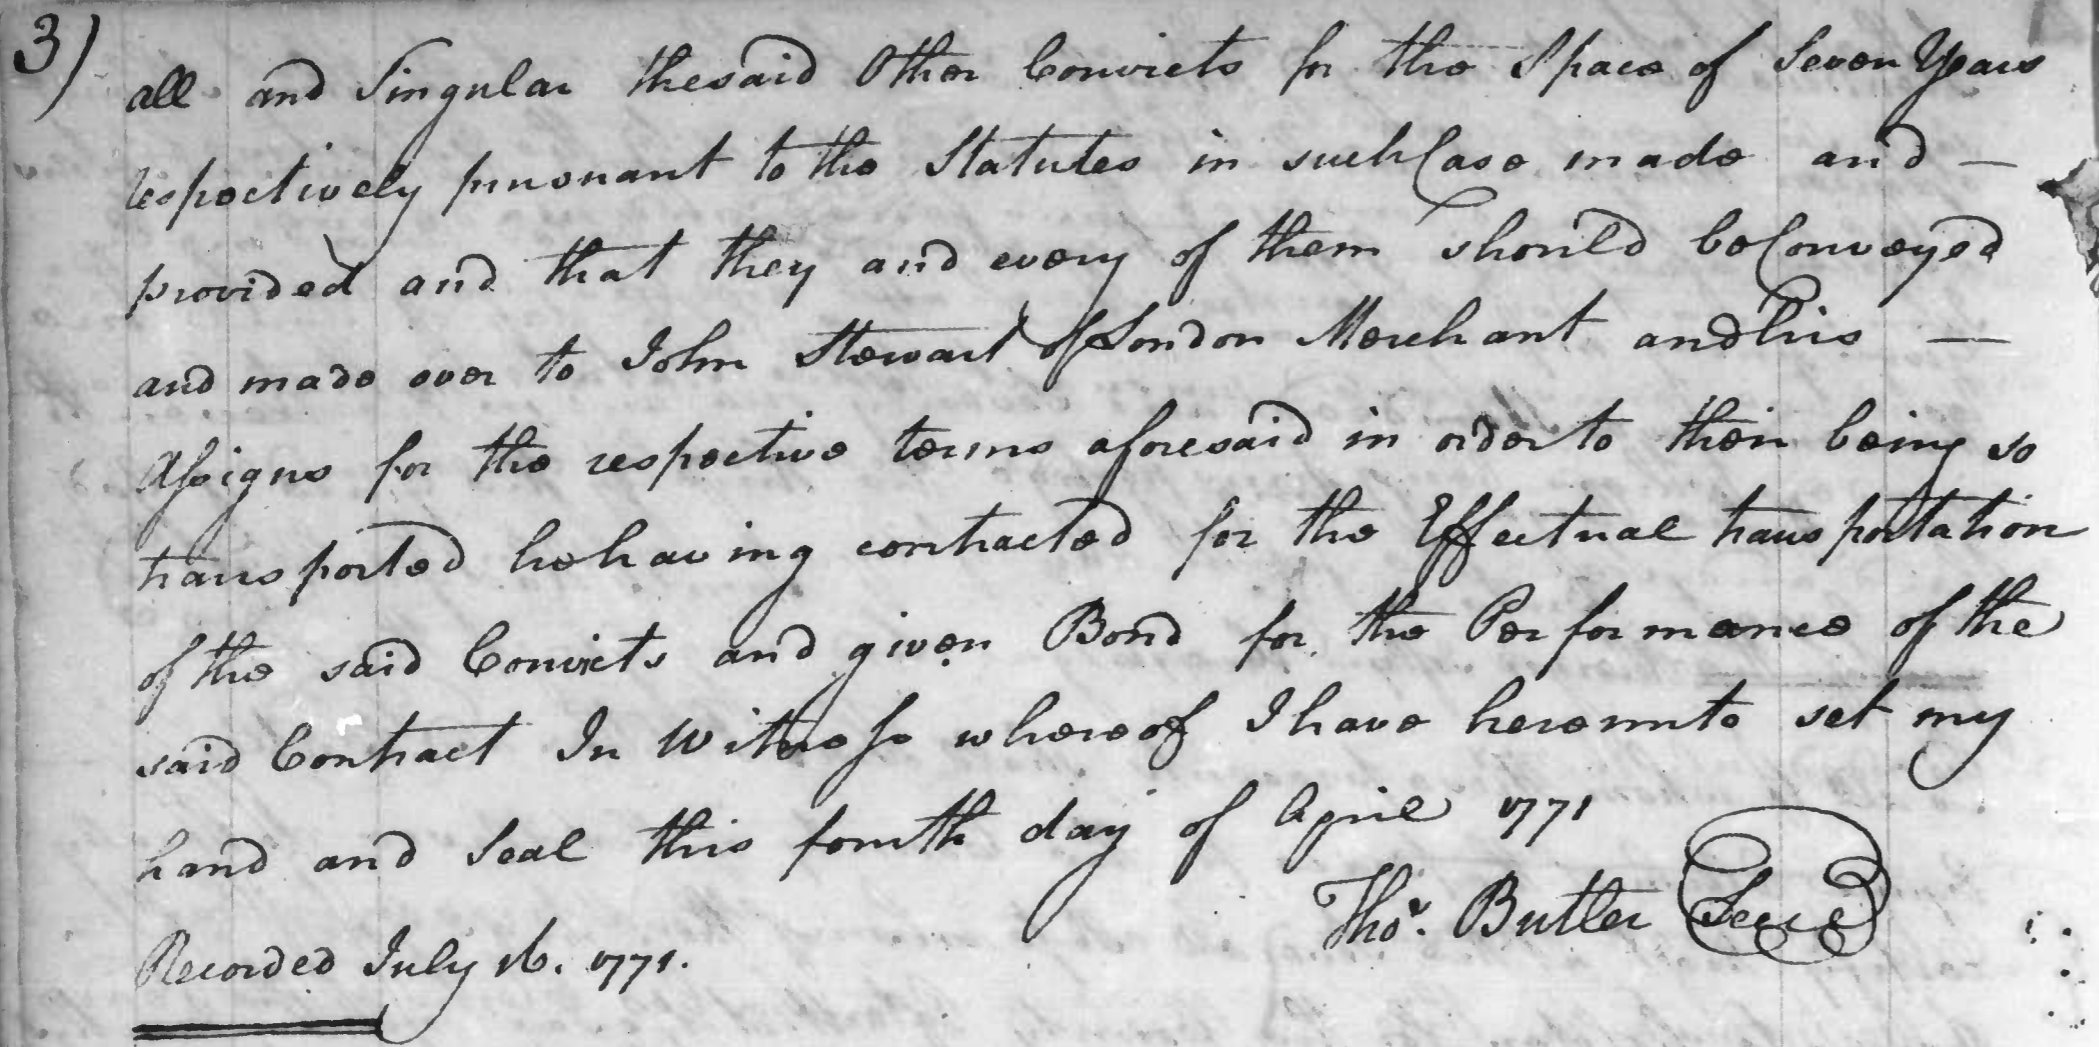 3)
all and Singular the said Other Convicts for the Space of Seven Years
respectively pursuant to the Statutes in such Case made and —
provided and that they and every of them should be Conveyed
and made over to John Stewart of London Merchant and his —
Assigns for the respective terms aforesaid in order to their being so
transported he having contracted for the Effectual transportation
of the said Convicts and given Bond for the Performance of the
said Contract In Witness whereof I have hereunto set my
hand and Seal this fourth day of April 1771
Thos. Butler Seal
Recorded July 16. 1771.